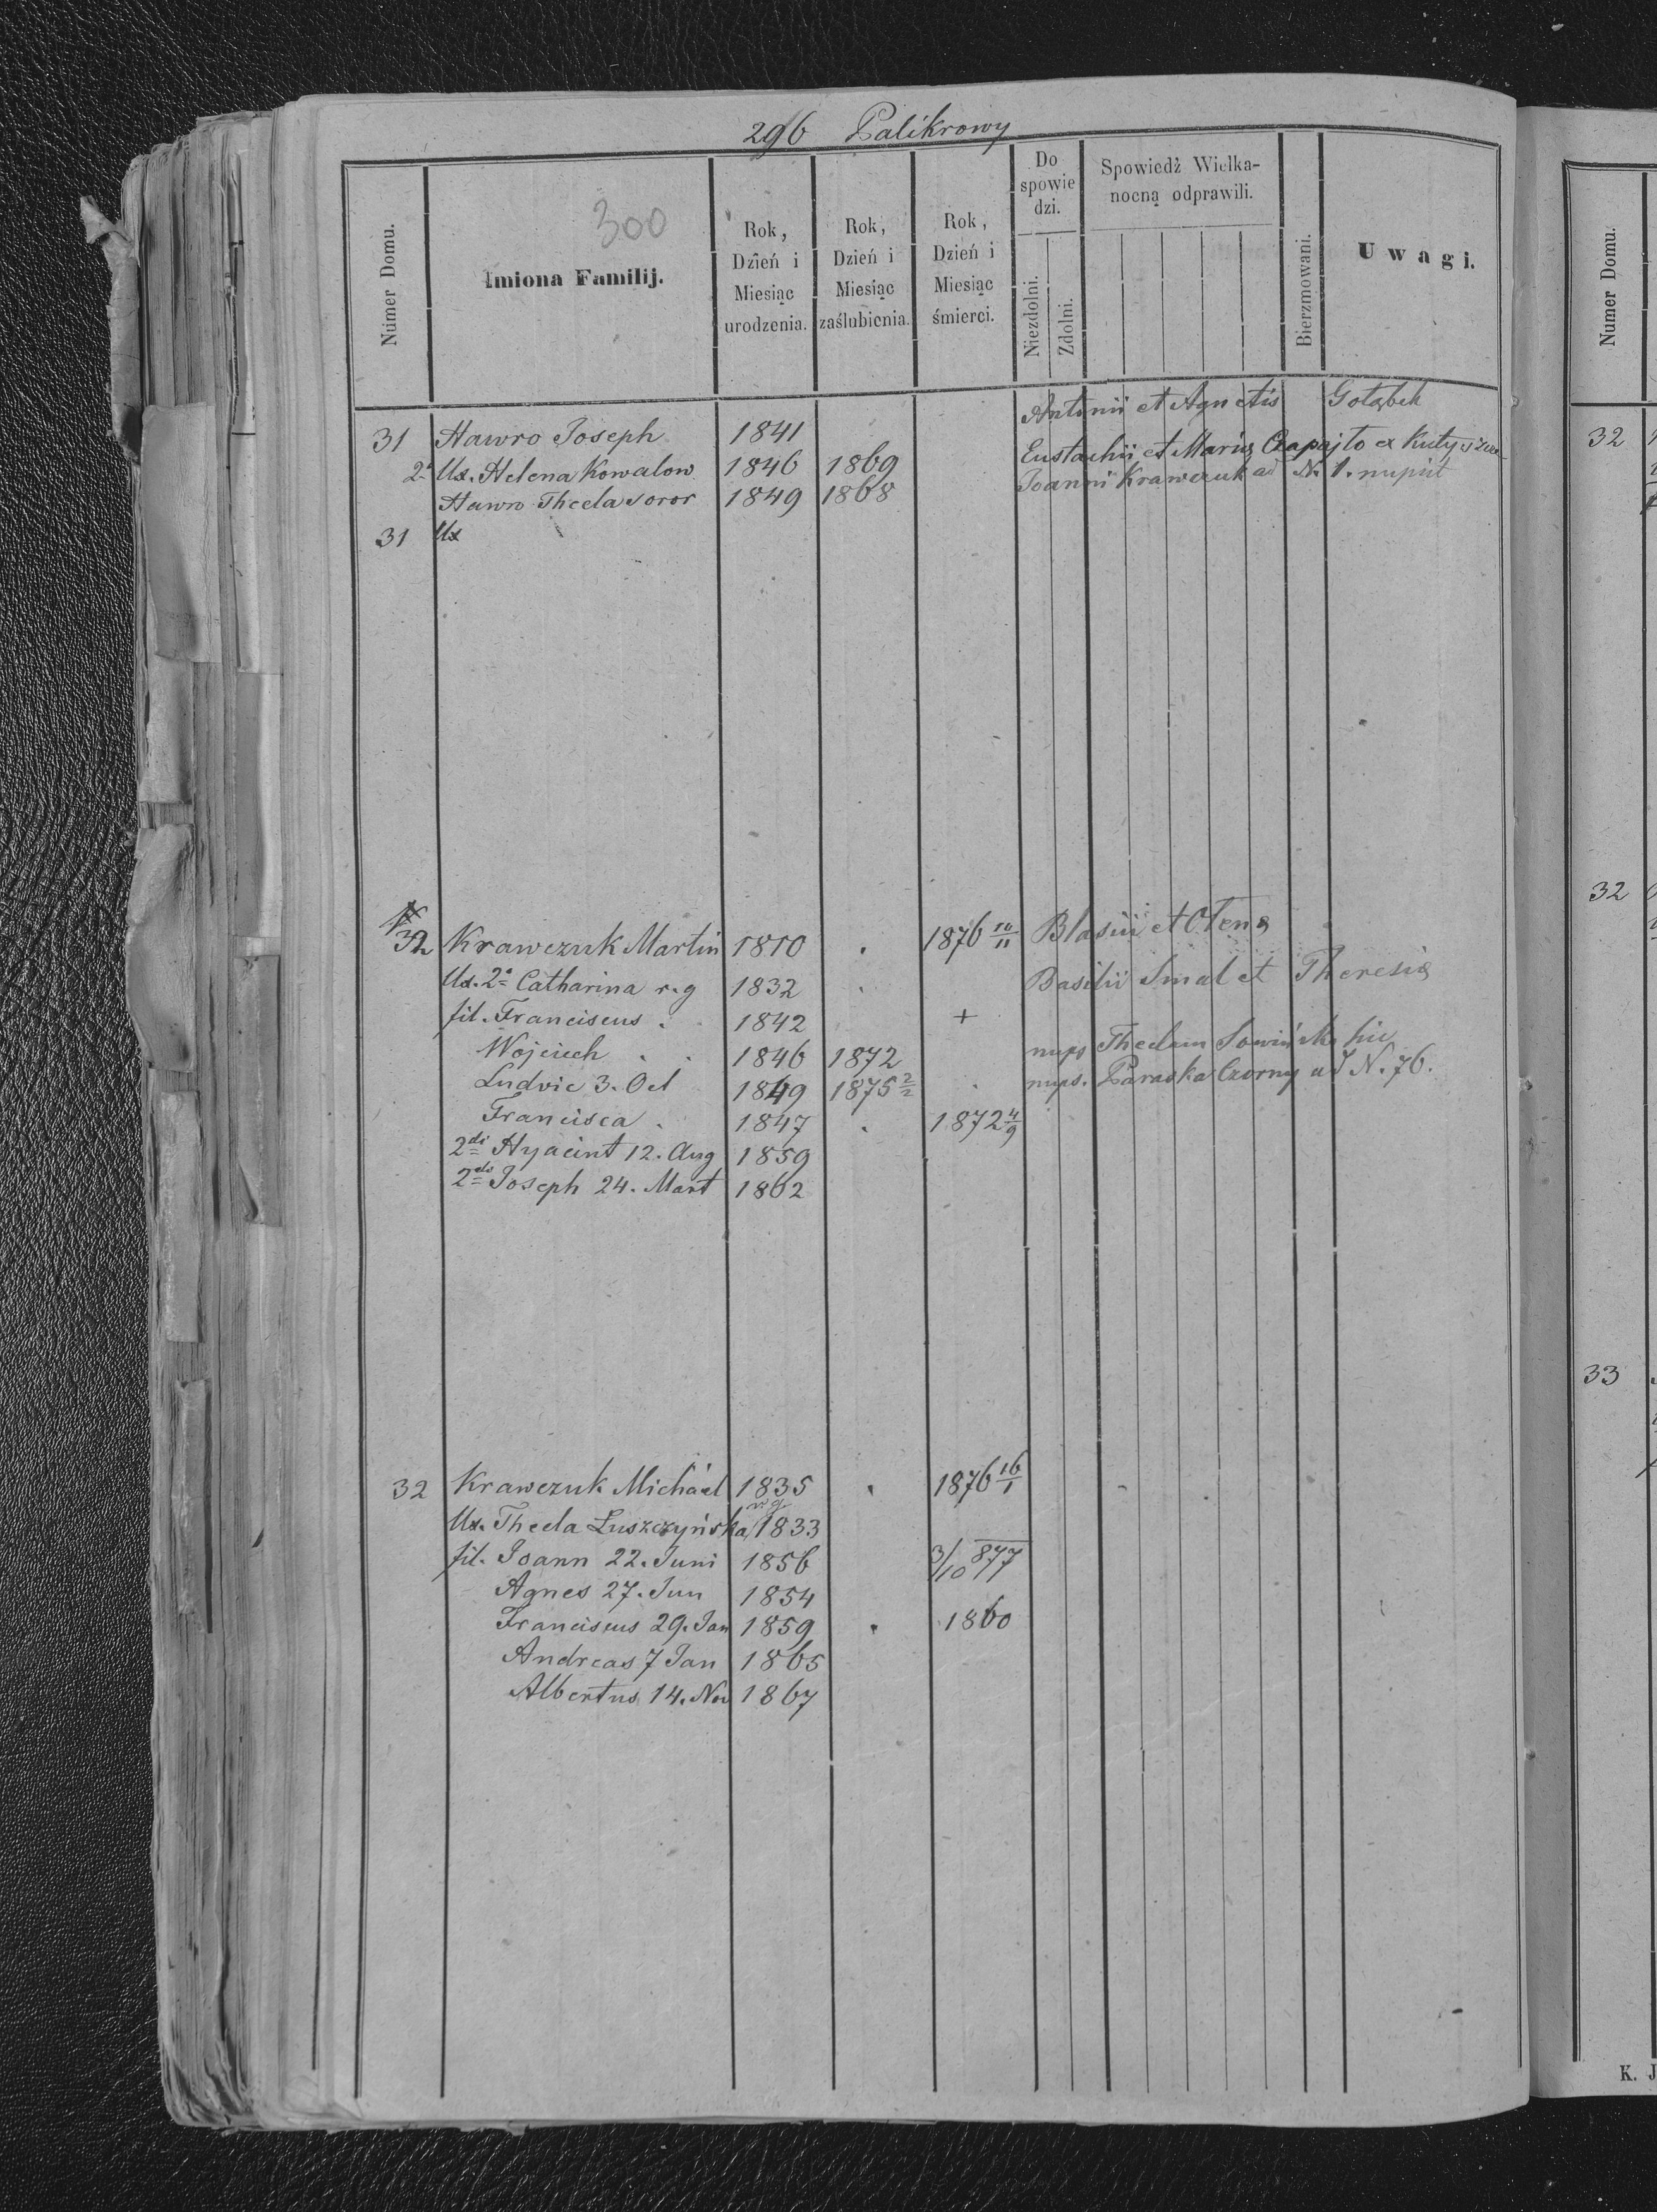 296 Palikrowy
300
Numer Domu.
Imiona Familij.
Rok, Dzień i Miesiąc urodzenia.
Rok, Dzień i Miesiąc zaślubienia.
Rok, Dzień i Miesiąc śmierci.
Do spowiedzi.
Niezdolni.
Zdolni.
Spowiedź Wielkanocną odprawili.
Bierzmowani.
Uwagi.
31 Hawro Joseph 1841 Antonii et Agnetis Gołąbek
2ª Ux. Helena Kowalow 1846 1869 Eustachii et Mariæ Czapajto ex
Hawro Thecla soror 1849 1868 Joanni Krawczuk ad N. 1. nupsit
31 Ux
N 32 Krawczuk Martin 1810 . 1876 10/11 Blasii et Olenæ
Ux. 2ª Catharina r.g 1832 . Basilii Smal et Theresiæ
fil. Franciscus . 1842 +
Wojciech . . 1846 1872 nups Theclam hic
Ludvic 3. Oct 1849 1875 2/2 . nups. Paraska Czorny ad N. 76.
Francisca . 1847 . 1872 4/9
2di Hyacint 12. Aug 1859
2di Joseph 24. Mart 1862
32 Krawczuk Michael 1835 . 1876 16/1
Ux. Thecla Łuszczyńska r.g 1833
fil. Joann 22. Juni 1856 3/10 877
Agnes 27. Jun 1854
Franciscus 29. Jan 1859 . 1860
Andreas 7 Jan 1865
Albertus 14. Nov 1867
Numer Domu.
32
32
33
K. J